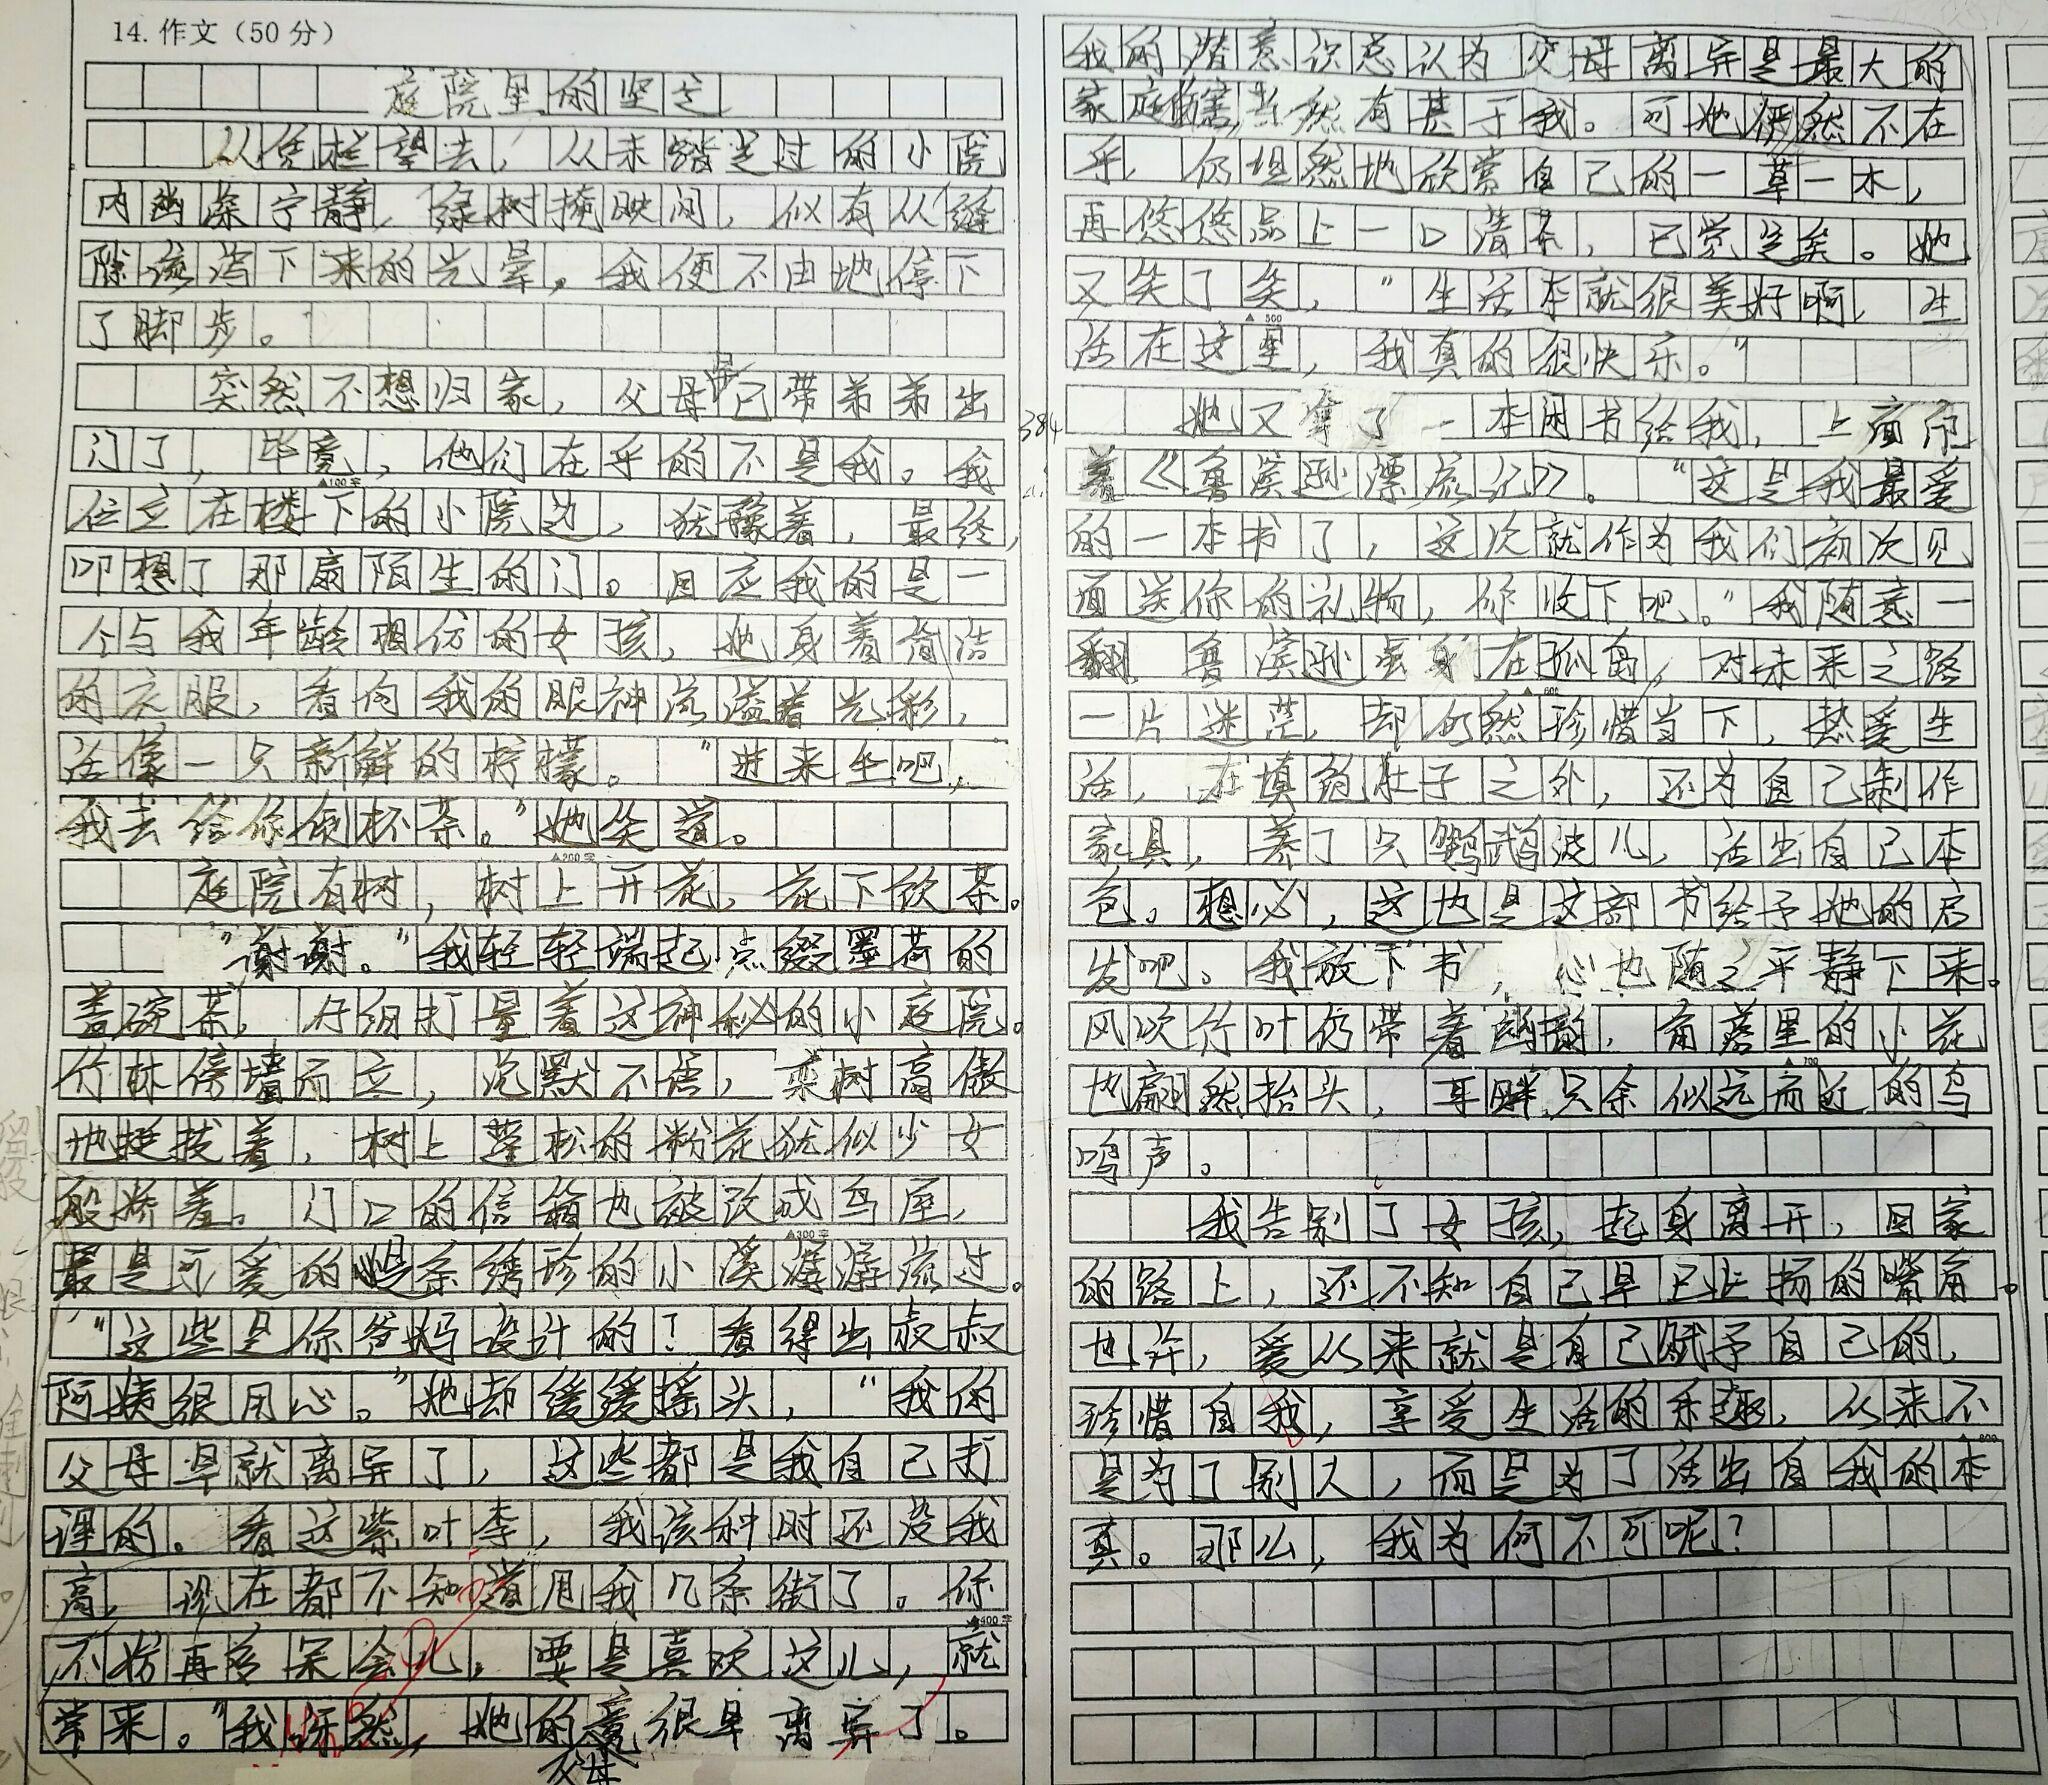 14. 作文（50 分）
庭院里的坚芒
从凭栏望去，从未踏足过的小院
内幽深宁静，绿树掩映间，似有从缝
隙流泻下来的光晕，我便不由地停下
了脚步。
突然不想归家，父母早已带弟弟出
门了，毕竟，他们在乎的不是我。我
▲100字
伫立在楼下的小院边，犹豫着，最终，
叩想了那扇陌生的门。回应我的是一
个与我年龄相仿的女孩，她身着简洁
的衣服，看向我的眼神流溢着光彩，
活像一只新鲜的柠檬。“进来坐吧，
我去给你倾杯茶。”她笑道。
▲200字
庭院有树，树上开花，花下饮茶。
“谢谢。”我轻轻端起点缀墨荷的
盖碗茶，仔细打量着这神秘的小庭院。
竹林傍墙而立，沉默不语，栾树高傲
地挺拔着，树上蓬松的粉花犹似少女
般娇羞。门口的信箱也被改成鸟屋，
▲300字
最是可爱的是条绣珍的小溪潺潺流过。
“这些是你爸妈设计的？看得出叔叔
阿姨很用心。”她却缓缓摇头，“我的
父母早就离异了，这些都是我自己打
理的。看这紫叶李，我该种时还没我
高，诊在都不知道甩我几条街了。你
▲400字
不妨再多呆会儿，要是喜欢这儿，就
常来。”我讶然，她的父母竟很早离异了。
我的潜意识总认为父母离异是最大的
家庭伤害，当然有甚于我。可她俩然不在
乎，仍坦然地欣赏自己的一草一木，
再悠悠品上一口清茶，已觉足矣。她
又笑了笑，“生活本就很美好啊，生
▲500
活在这里，我真的很快乐。”
384
她又拿了一本闲书给我，上面印
着《鲁滨逊漂流记》。“这是我最爱
的一本书了，这次就作为我们初次见
面送你的礼物，你收下吧。”我随意一
翻，鲁滨逊虽身在孤岛，对未来之路
▲600
一片迷茫，却仍然珍惜当下，热爱生
活，在填饱肚子之外，还为自己制作
家具，养了只鹦鹉波儿，活出自己本
色。想必，这也是这部书给予她的启
发吧。我放下书，心也随之平静下来。
风吹竹叶仍带着幽韵，角落里的小花
▲700
也翩然抬头，耳畔只余似远而近的鸟
鸣声。
我告别了女孩，起身离开，回家
的路上，还不知自己早已上扬的嘴角。
也许，爱从来就是自己赋予自己的，
珍惜自我，享受生活的乐趣，从来不
▲800
是为了别人，而是为了活出自我的本
真。那么，我为何不可呢？